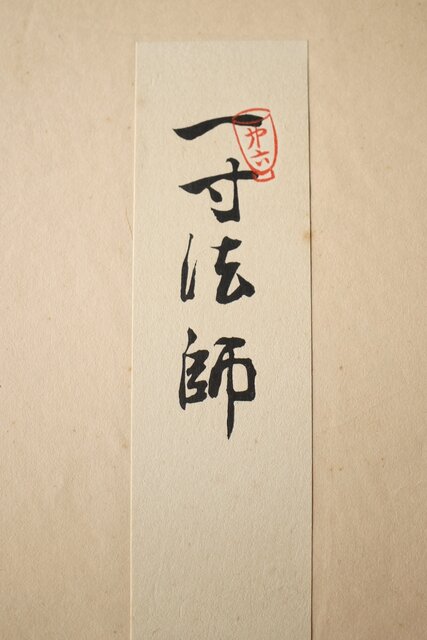 一寸法師
㐧六